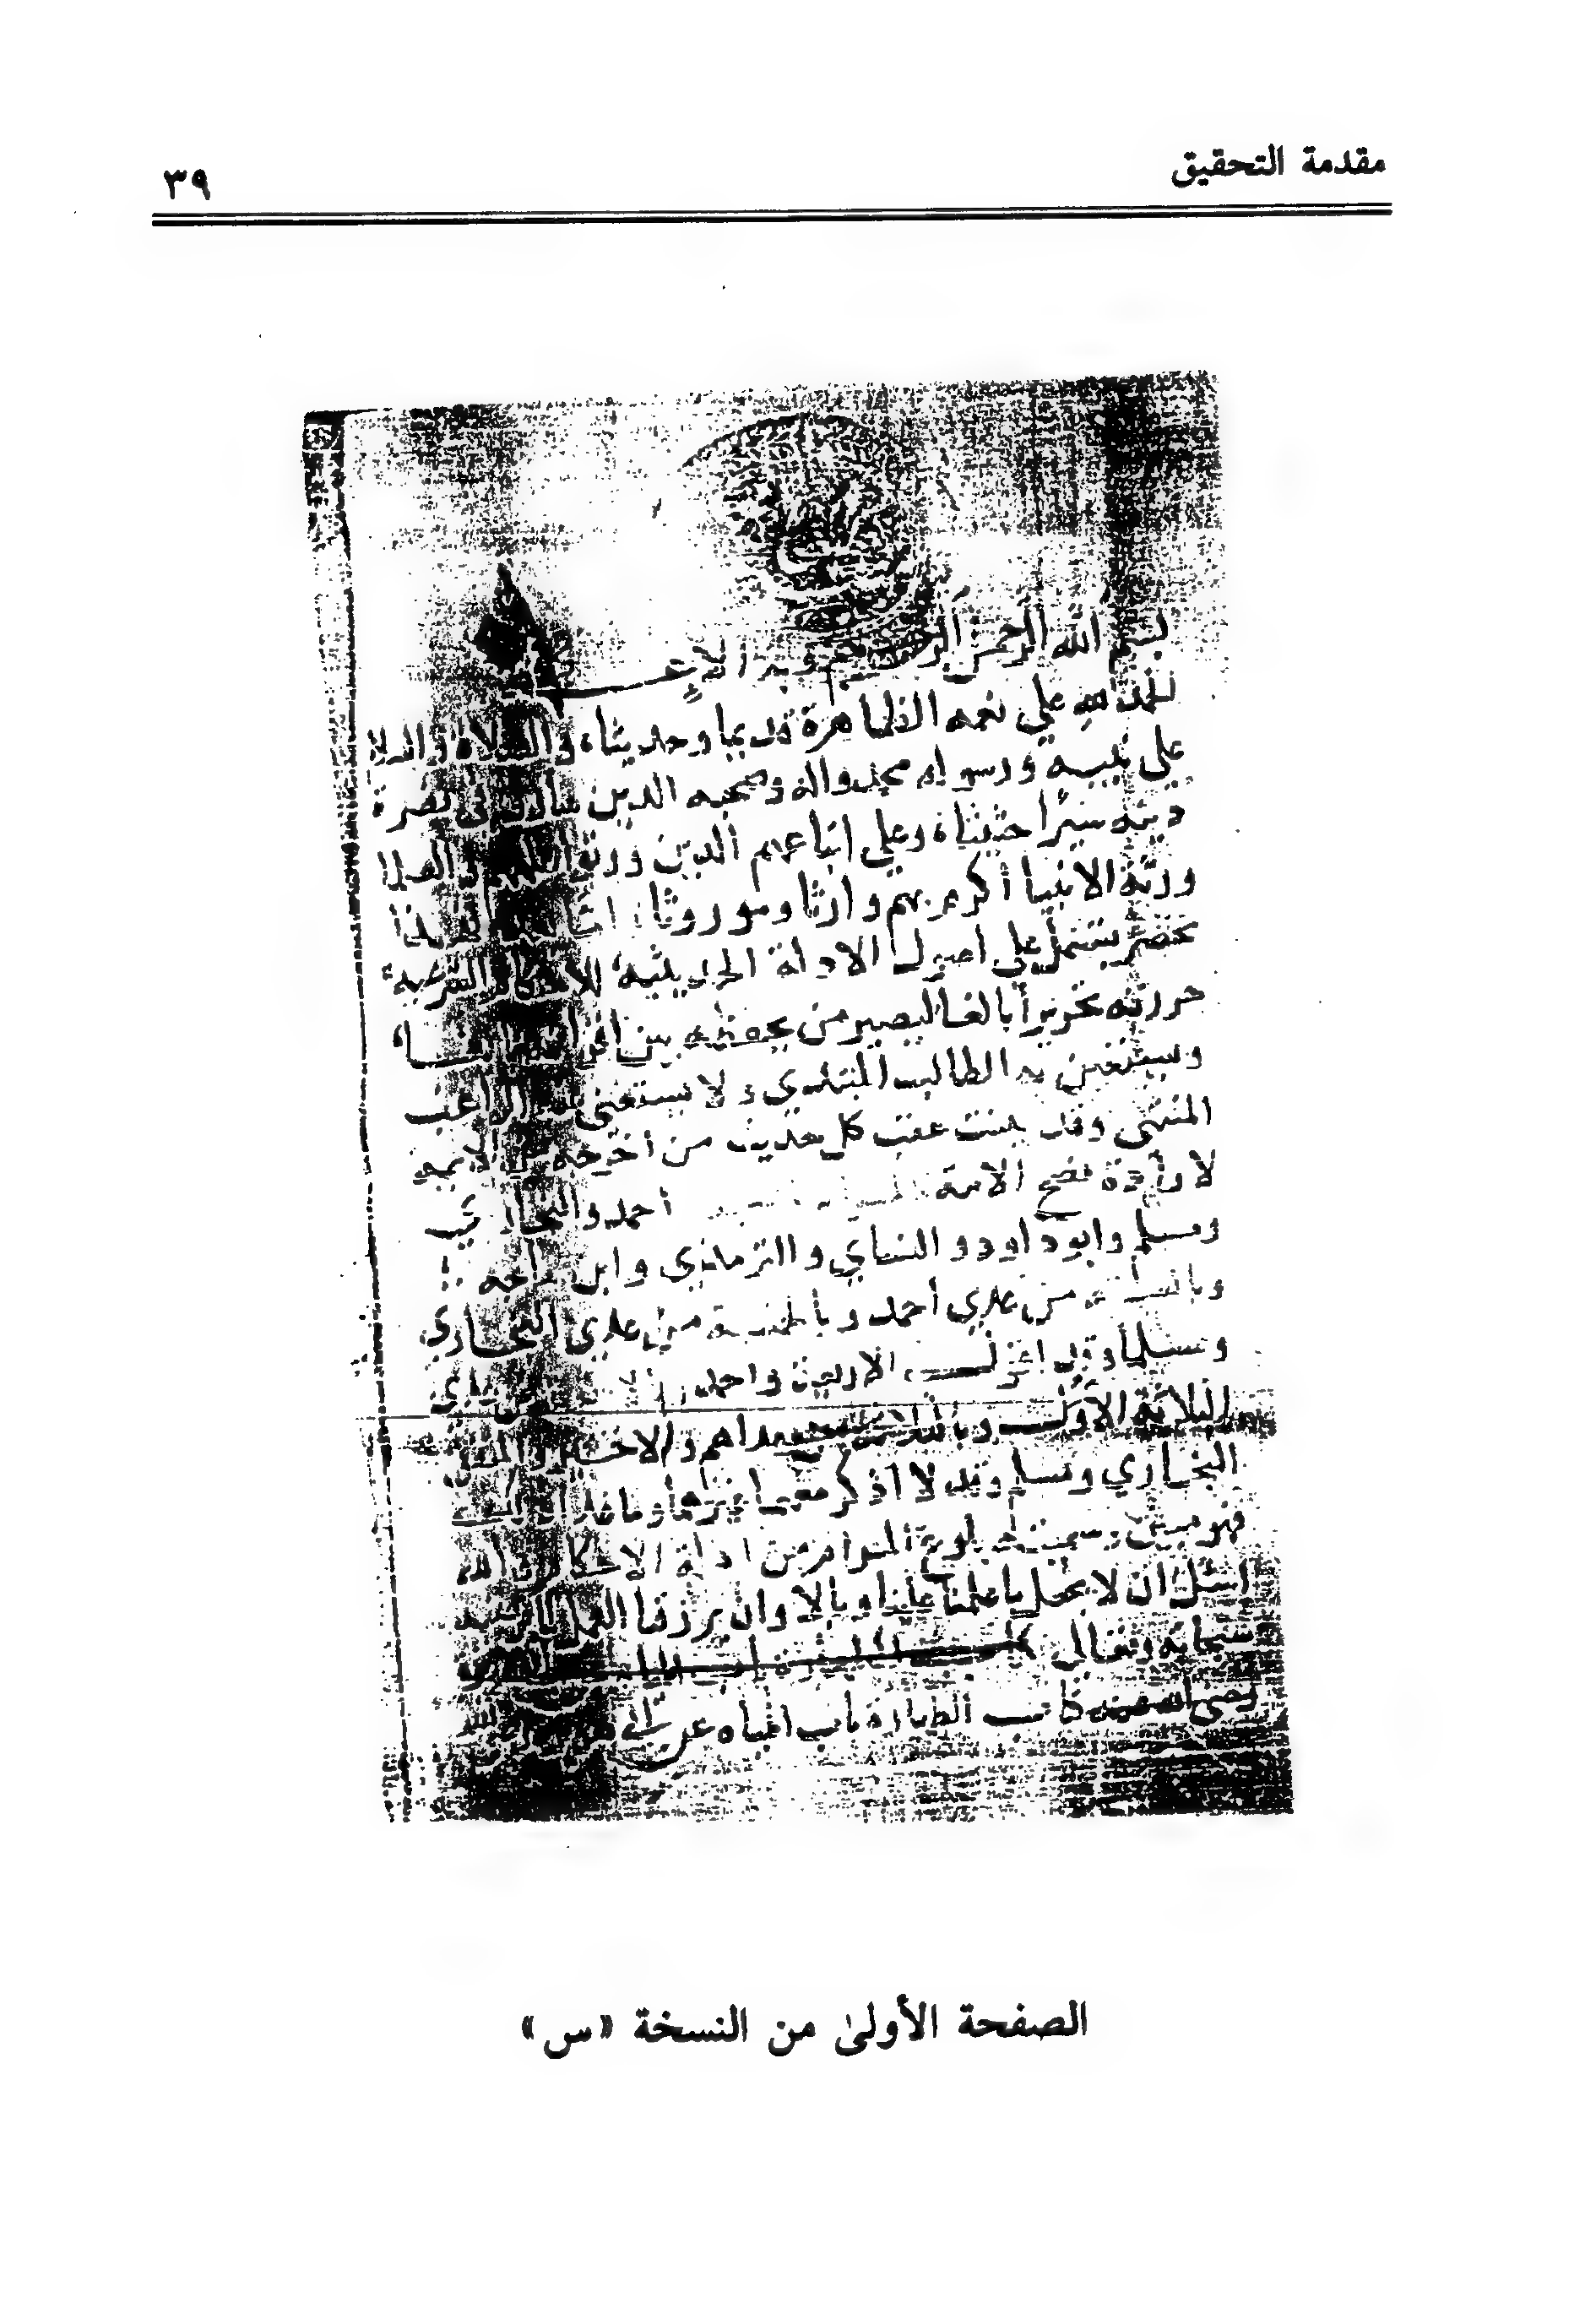 مقدمة التحقيق
٣٩
بسم الله الرحمن الرحيم وبه الإعـ
الحمد لله علي نعمه الظاهرة قديما وحديثا، والصلاة والسلا
علي نبيه ورسوله محمد واله وصحبه الذين ساروا في نصرة
دينه سيرًا حثيثا، وعلي اتباعهم الذين ورثوا والعلما
ورثة الانبيا أكرم بهم وارثا وموروثا، اما
مختصر يشتمل علي اصول الادلة الحديثية للاحكام الشرعية
حررته تحريرًا بالغا ليصير من يحفظه بين اقرانه
ويستعين به الطالب المبتدي، ولا يستغني عنه الراغب
المنتهي وقد بينت عقب كل حديث من أخرجه من الايمة
لارادة نصح الامة أحمد والبخاري
ومسلم وابوداود و النساي و الترمذي وابن ماجه
من عدي أحمد و من عدي البخاري
ومسلما وقد اقول الاربعة واحمد
الثلاثة الأول وبالثلاثة من عداهم والاخير
البخاري ومسلم وقد لا اذكر معهما غيرهما وما عدا ذلك
فهو مبين وسميته بلوغ المرام من ادلة الاحكام والله
اسئل ان لا يجعل ما علمنا علينا وبالا وان يرزقنا العمل بما يرضيه
سبحانه وتعالي
كتاب الطهارة باب المياه عن أبي
الصفحة الأولىٰ من النسخة «س»